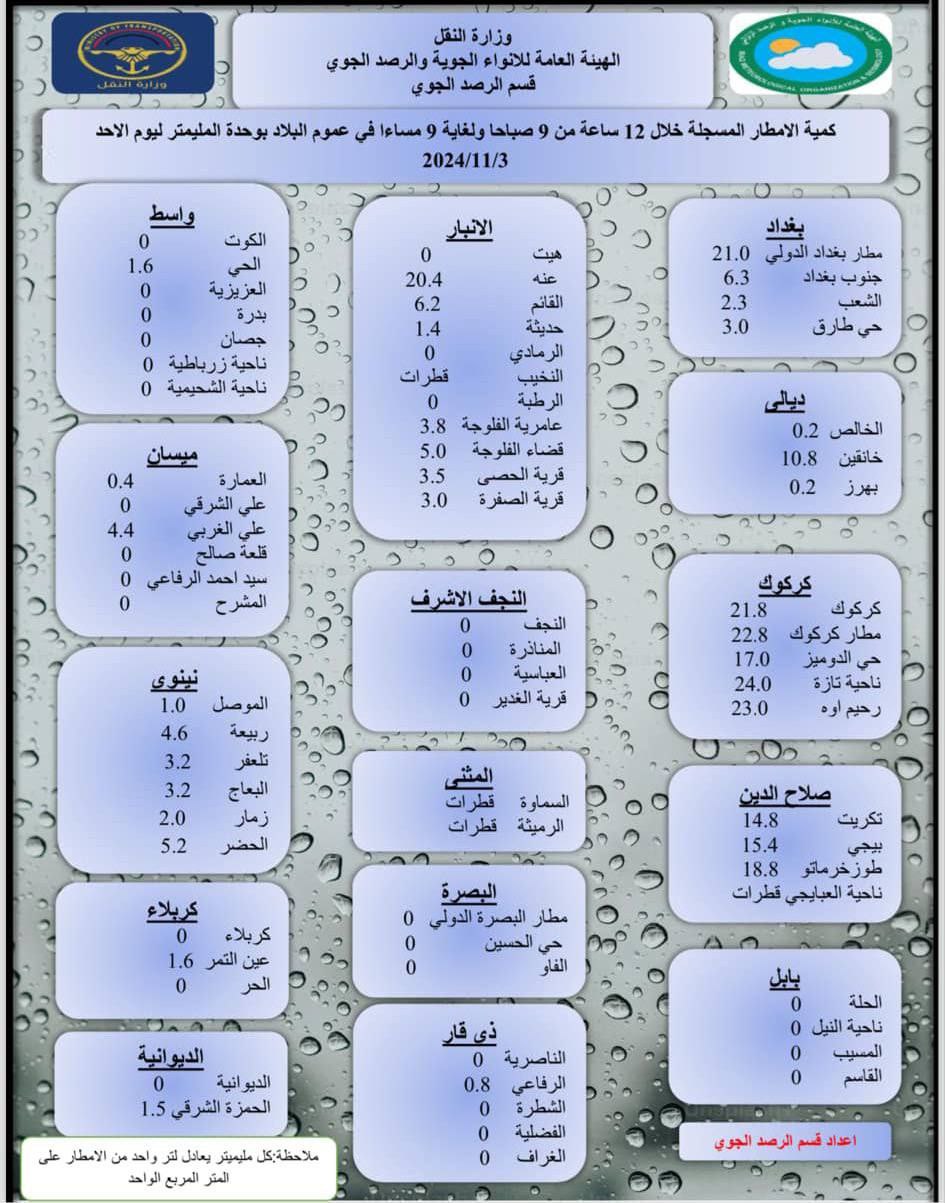 وزارة النقل
الهيئة العامة للانواء الجوية والرصد الجوي
قسم الرصد الجوي
MINISTRY OF TRANSPORTATION
وزارة النقل
كمية الامطار المسجلة خلال 12 ساعة من 9 صباحا ولغاية 9 مساءا في عموم البلاد بوحدة المليمتر ليوم الاحد
2024/11/3
بغداد
مطار بغداد الدولي 21.0
جنوب بغداد 6.3
الشعب 2.3
حي طارق 3.0
ديالى
الخالص 0.2
خانقين 10.8
بهرز 0.2
كركوك
كركوك 21.8
مطار كركوك 22.8
حي الدوميز 17.0
ناحية تازة 24.0
رحيم اوه 23.0
صلاح الدين
تكريت 14.8
بيجي 15.4
طوزخرماتو 18.8
ناحية العبايجي قطرات
بابل
الحلة 0
ناحية النيل 0
المسيب 0
القاسم 0
اعداد قسم الرصد الجوي
الانبار
هيت 0
عنه 20.4
القائم 6.2
حديثة 1.4
الرمادي 0
النخيب قطرات
الرطبة 0
عامرية الفلوجة 3.8
قضاء الفلوجة 5.0
قرية الحصى 3.5
قرية الصفرة 3.0
النجف الاشرف
النجف 0
المناذرة 0
العباسية 0
قرية الغدير 0
المثنى
السماوة قطرات
الرميثة قطرات
البصرة
مطار البصرة الدولي 0
حي الحسين 0
الفاو 0
ذي قار
الناصرية 0
الرفاعي 0.8
الشطرة 0
الفضلية 0
الغراف 0
واسط
الكوت 0
الحي 1.6
العزيزية 0
بدرة 0
جصان 0
ناحية زرباطية 0
ناحية الشحيمية 0
ميسان
العمارة 0.4
علي الشرقي 0
علي الغربي 4.4
قلعة صالح 0
سيد احمد الرفاعي 0
المشرح 0
نينوى
الموصل 1.0
ربيعة 4.6
تلعفر 3.2
البعاج 3.2
زمار 2.0
الحضر 5.2
كربلاء
كربلاء 0
عين التمر 1.6
الحر 0
الديوانية
الديوانية 0
الحمزة الشرقي 1.5
ملاحظة:كل مليميتر يعادل لتر واحد من الامطار على
المتر المربع الواحد